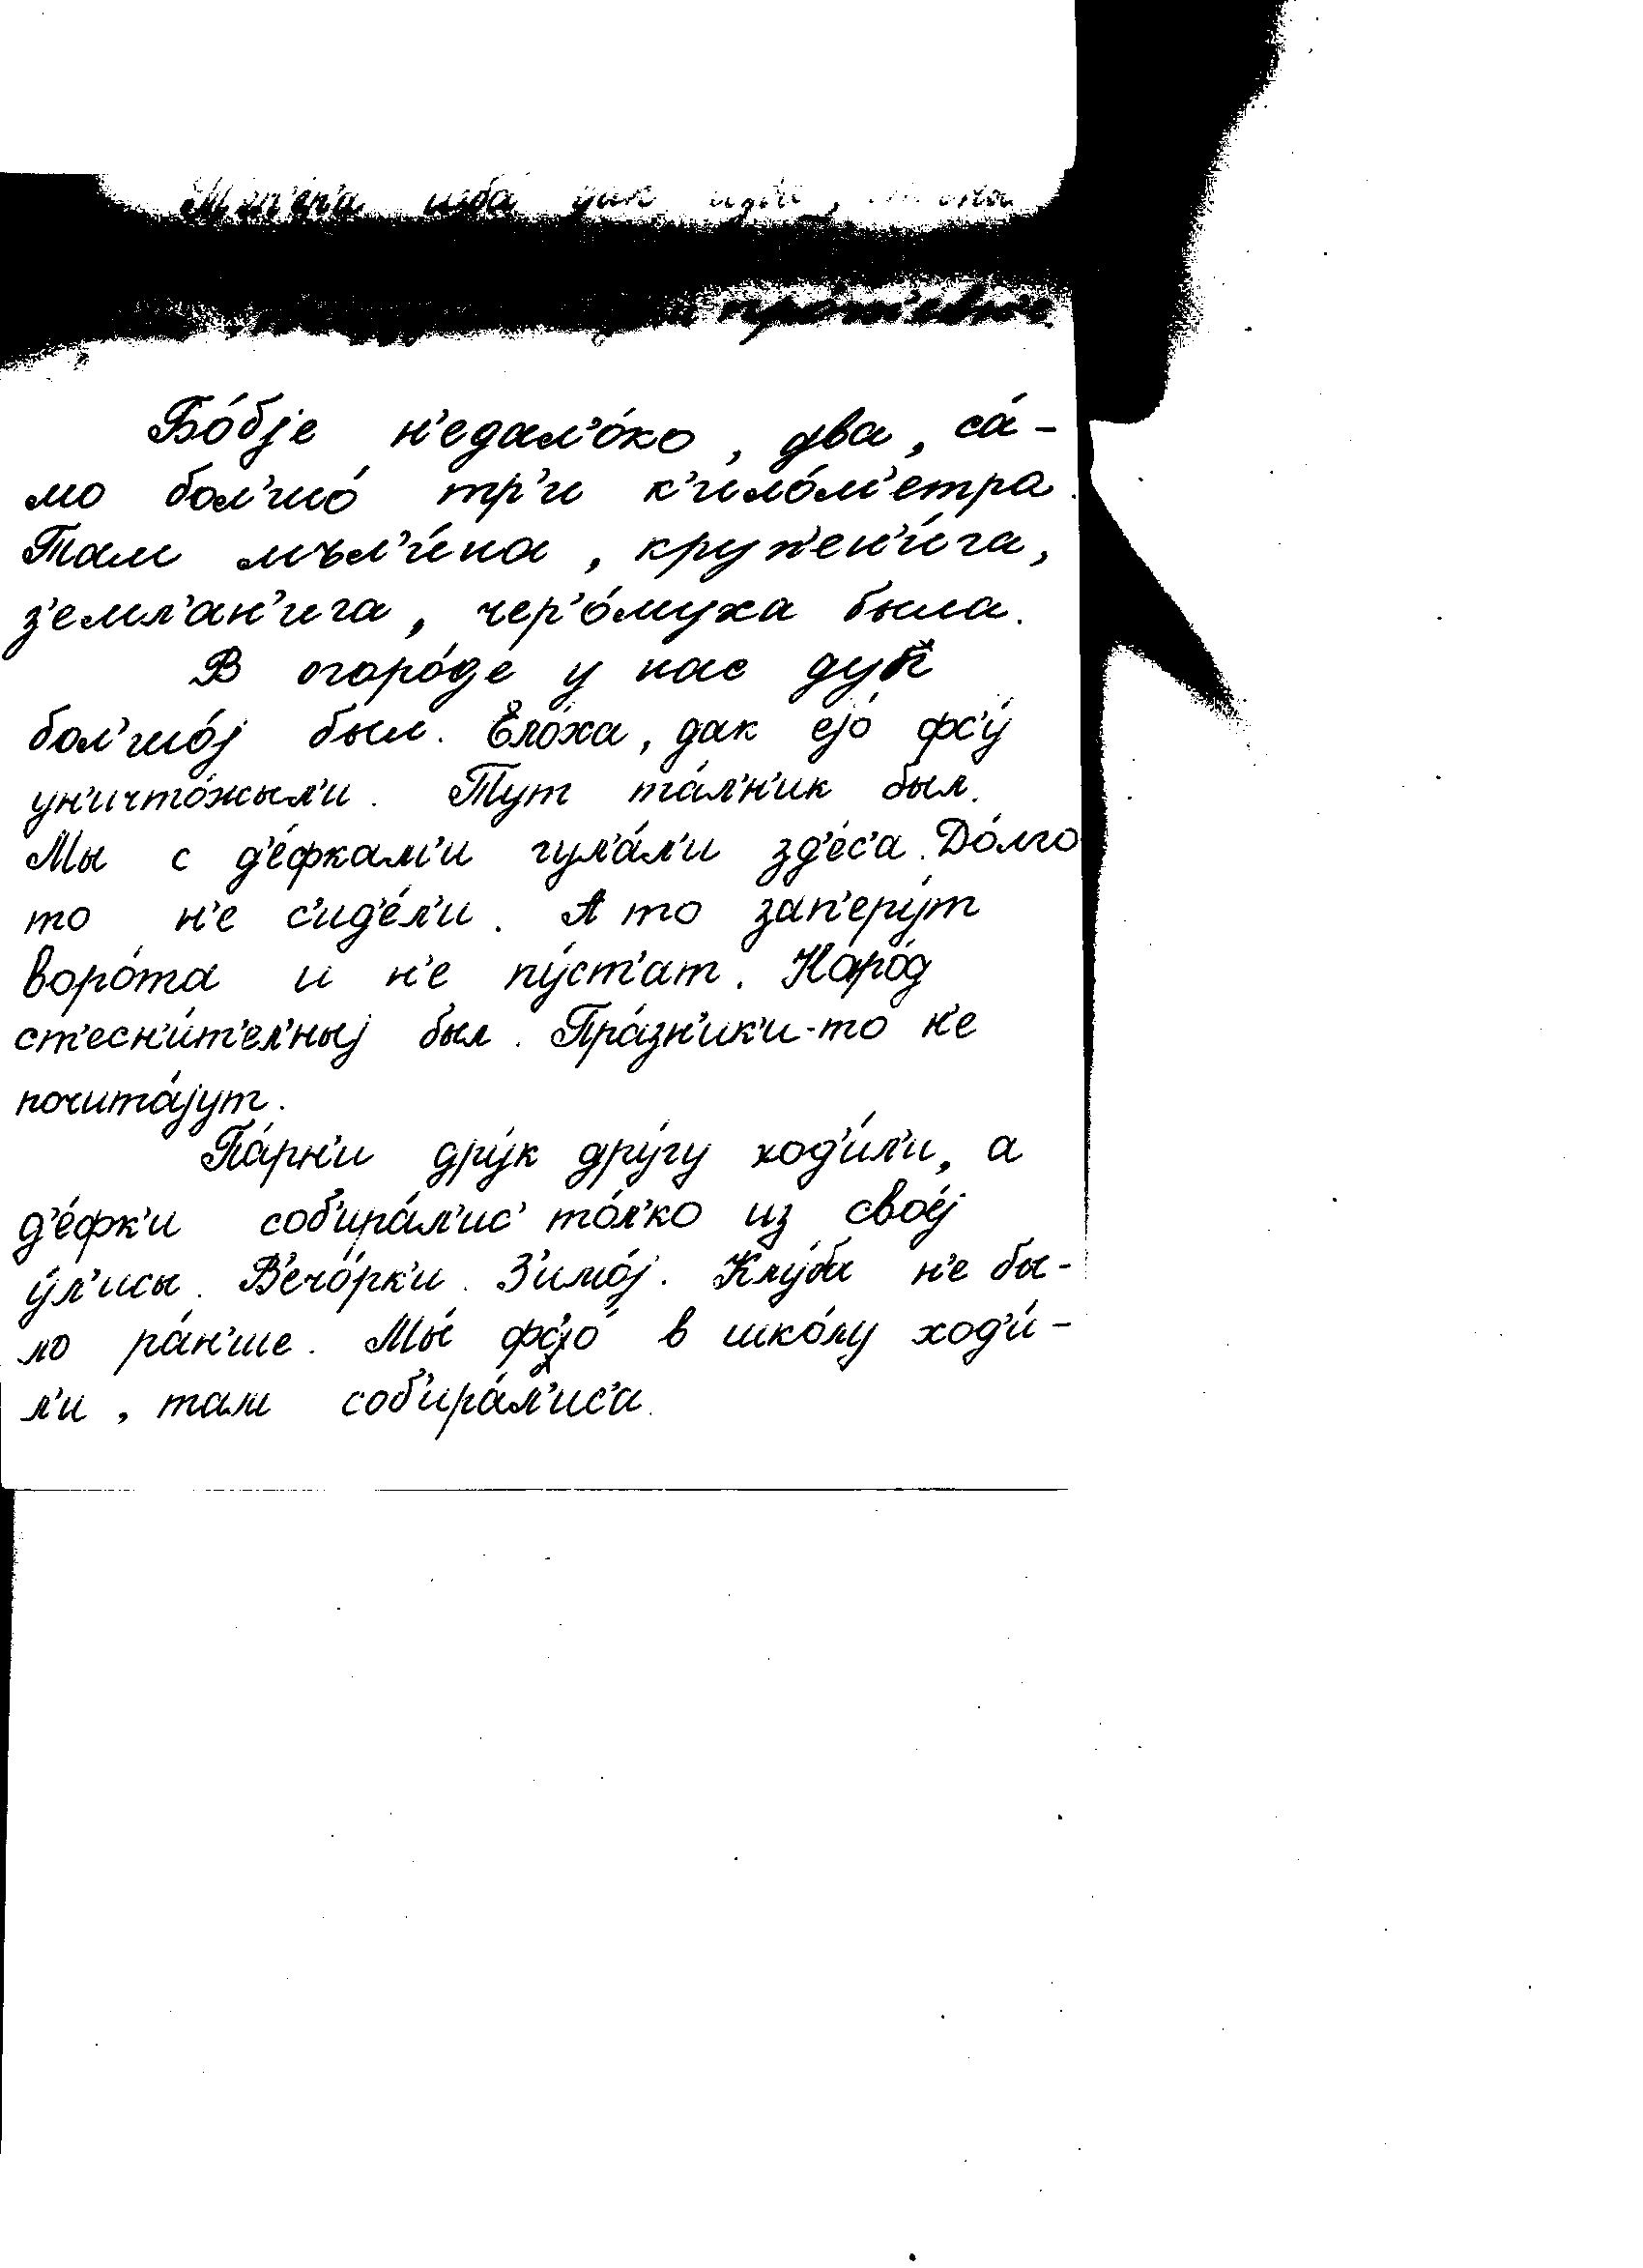 изба дак
Бо́бjе н'едал'о́ко, два, са́-
мо бол'шо́ тр'и к'ило́м'етра.
Там мъл'и́на, кружен'и́га,
з'емл'ан'ига, чер'о́муха была.
В огоро́д'е у нас дуп
бол'шо́j был. Ело́ха, дак еjо́ фс'у́
ун'ичто́жыл'и. Тут та́л'н'ик был.
Мы с д'е́фкам'и гул'а́л'и зд'е́с'а. До́лго
то н'е с'ид'е́л'и. А то зап'еру́т
воро́та и н'е пу́ст'ат. Наро́д
ст'есн'и́т'ел'ныj был. Пра́зн'ик'и-то н'е
почита́jут.
Па́рн'и дру́к дру́гу ход'и́л'и, а
д'е́фк'и соб'ира́л'ис' то́л'ко из свое́j
у́л'исы. В'ечо́рк'и. З'имо́j. Клу́ба н'е бы-
ло ра́н'ше. Мы́ в шко́лу ход'и́-
л'и, там соб'ира́л'ис'а.